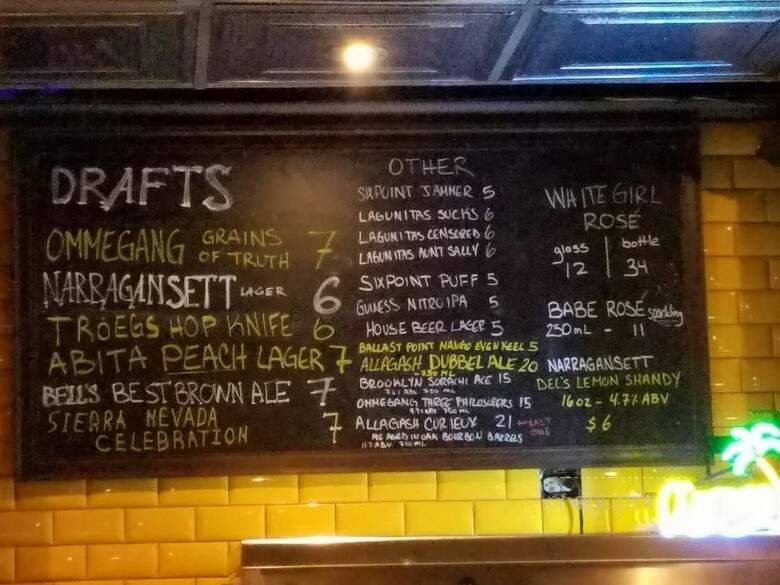 DRAFTS
OMMEGANG GRAINS OF TRUTH 7
NARRAGANSETT LAGER 6
TRÖEGS HOP KNIFE 6
ABITA PEACH LAGER 7
BELL'S BEST BROWN ALE 7
SIERRA NEVADA
CELEBRATION 7
OTHER
SIXPOINT JAMMER 5
LAGUNITAS SUCKS 6
LAGUNITAS CENSORED 6
LAGUNITAS AUNT SALLY 6
SIXPOINT PUFF 5
GUINESS NITRO IPA 5
HOUSE BEER LAGER 5
BALLAST POINT MANGO EVEN KEEL 5
ALLAGASH DUBBEL ALE 20
750 ML
BROOKLYN SORACHI ACE 15
OMMEGANG THREE PHILOSOPERS 15
ALLAGASH CURIEUX 21 ←LAST ONE
AGED IN OAK BOURBON BARRELS
WHITE GIRL
ROSÉ
glass | bottle
12 | 34
BABE ROSÉ sparkling
250mL - 11
NARRAGANSETT
DEL'S LEMON SHANDY
16oz - 4.7% ABV
$6